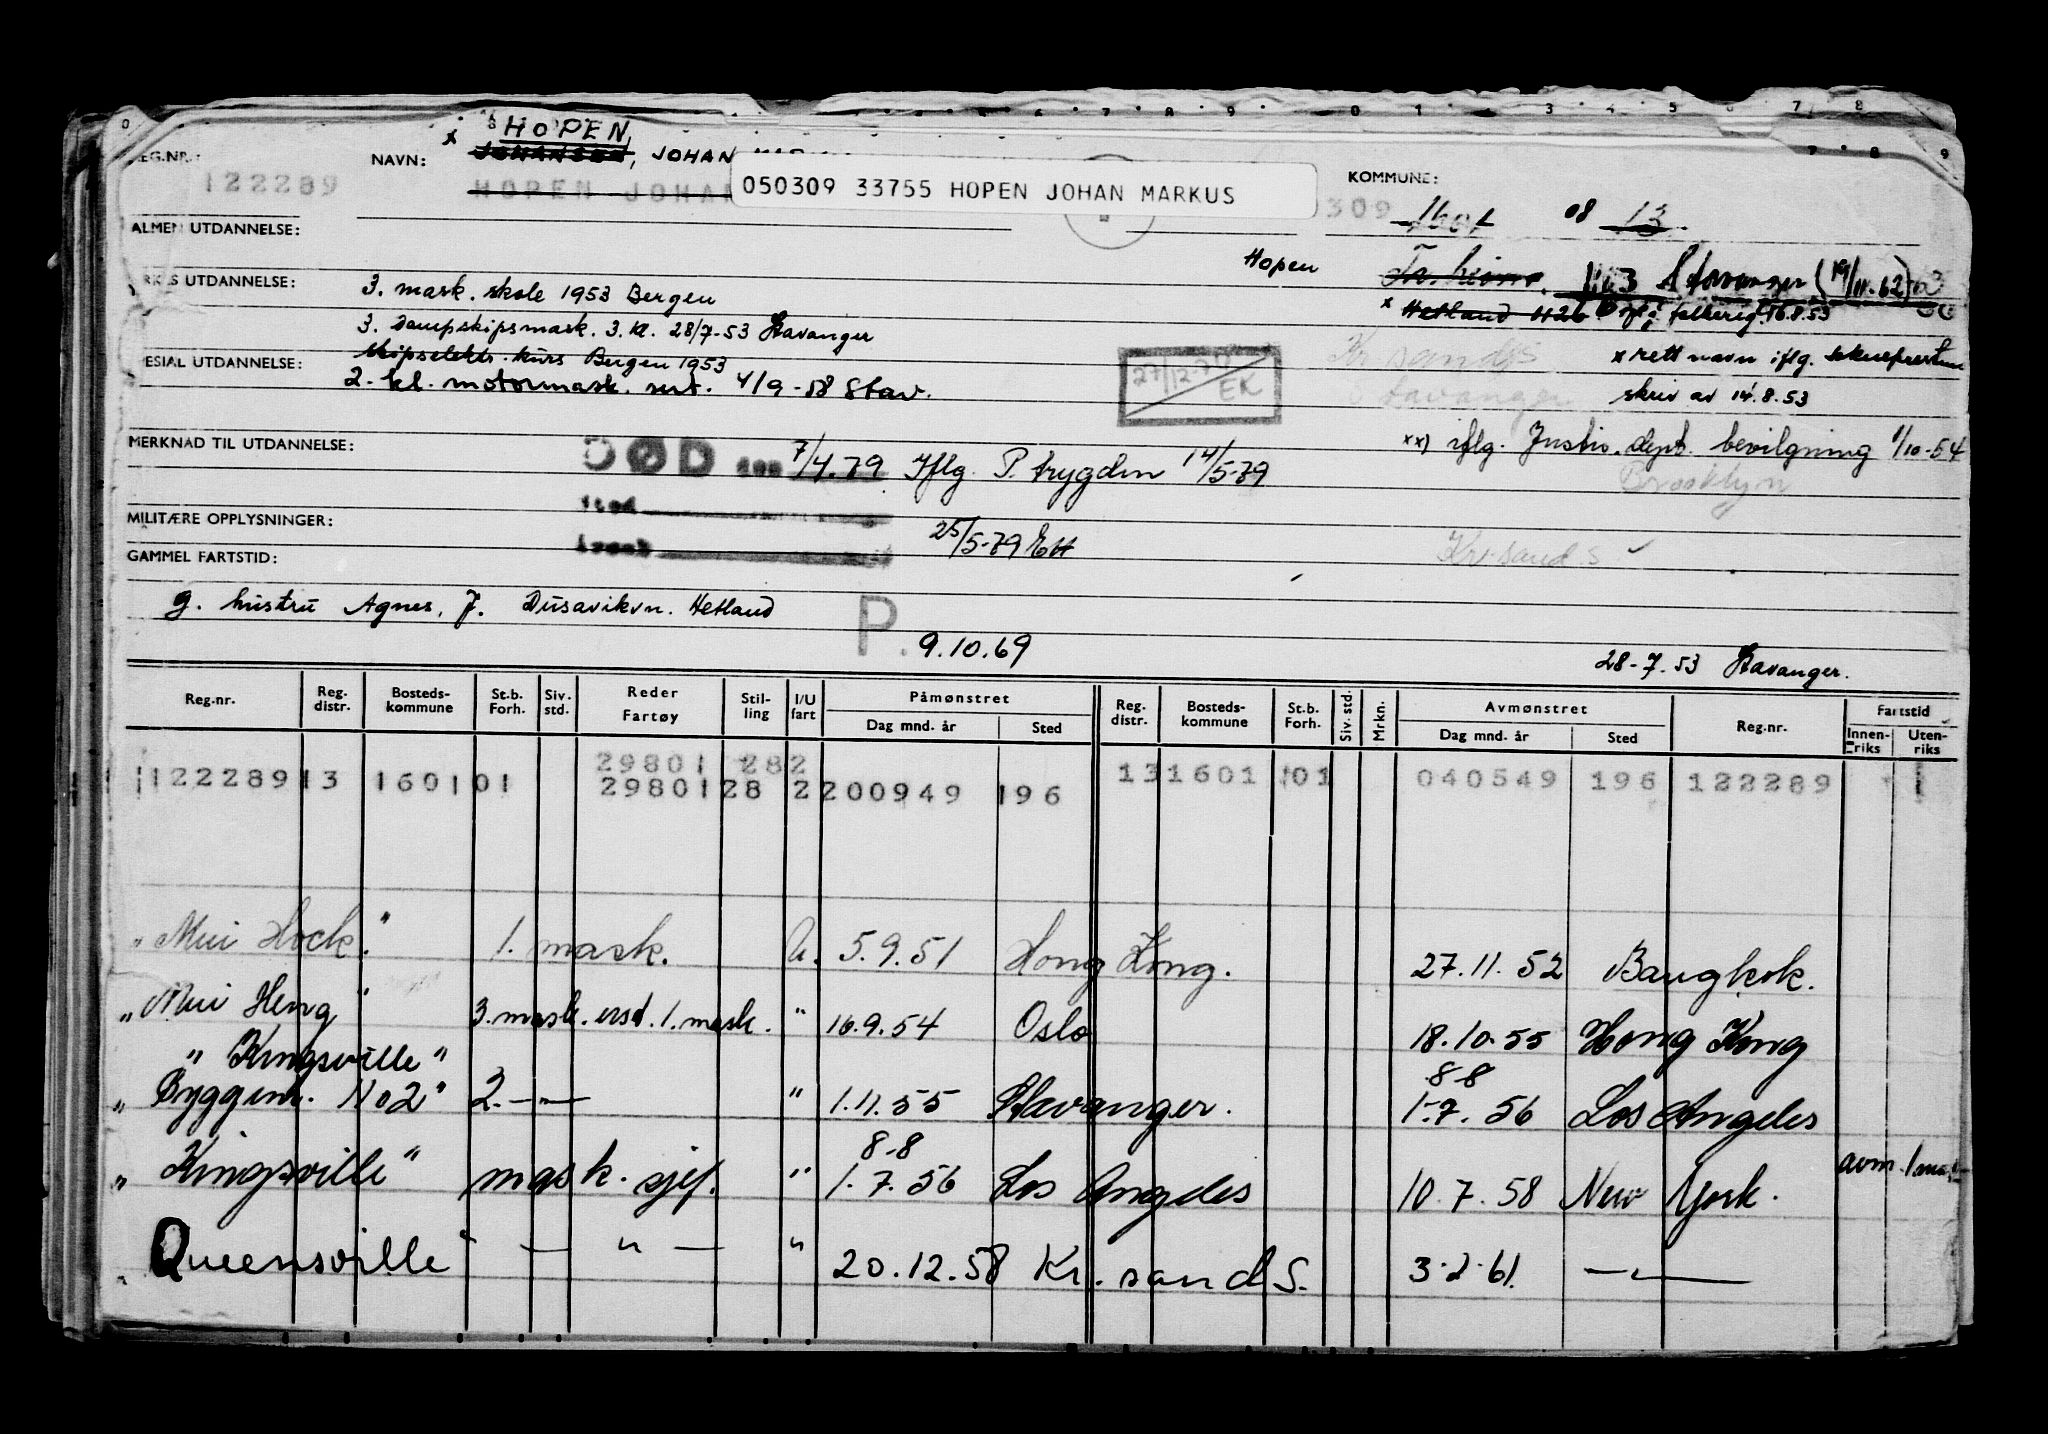 HOPEN,
REG.NR.: 122289 NAVN: x JOHANSEN, JOHAN
HOPEN JOHAN
050309 33755 HOPEN JOHAN MARKUS
KOMMUNE:
309 1601 08 13
ALMEN UTDANNELSE:
Hopen Tr.heim. 1103 Stavanger (19/11.62)
YRKES UTDANNELSE: 3. mask. skole 1953 Bergen
x Hetland 1126 folkereg. 16.8.53
3. Dampskipsmask. 3. kl. 28/7-53 Stavanger
Kr sand S x rett navn iflg. sokneprestens
SPESIAL UTDANNELSE: Skipselektr. kurs Bergen 1953
2. kl. motormask. sert. 4/9-58 Stav.
27/12-70 EK
Stavanger skriv av 14.8.53
MERKNAD TIL UTDANNELSE:
DØD den 7/4.79 Iflg P. trygden 14/5-79
xx) iflg. Justis. dept. bevilgning 1/10-54
Brooklyn
sted
MILITÆRE OPPLYSNINGER:
årsak 25/5-79
Kr.sand S
GAMMEL FARTSTID:
g. hustru Agnes, J. Dusavikvn. Hetland
P. 9.10.69
28-7.53 Stavanger.
Reg.nr. Reg. distr. Bosteds- kommune St.b. Forh. Siv. std. Reder Fartøy Stil- ling I/U fart Påmønstret Dag mnd. år Sted Reg. distr. Bosteds- kommune St.b. Forh. Siv. std. Mrkn. Avmønstret Dag mnd. år Sted Reg.nr. Fartstid Innen- riks Uten- riks
29801 282
122289 13 1601 01 29801 28 2 200949 196 13 1601 01 040549 196 122289
"Mui Hock" 1. mask. U. 5.9.51 Hong Kong. 27.11.52 Bangkok.
"Mui Heng" 3. mask. ersd. 1. mask. " 16.9.54 Oslo 18.10.55 Hong Kong
"Kingsville" 8-8
"Byggenr. No2" 2. — " — " 1.11.55 Stavanger. 1.7.56 Los Angeles
8-8
"Kingsville" mask. sjef. " 1.7.56 Los Angeles 10.7.58 New York. avm. 1 mask
"Queensville" — " — " 20.12.58 Kr.sand S. 3.2.61. — " —